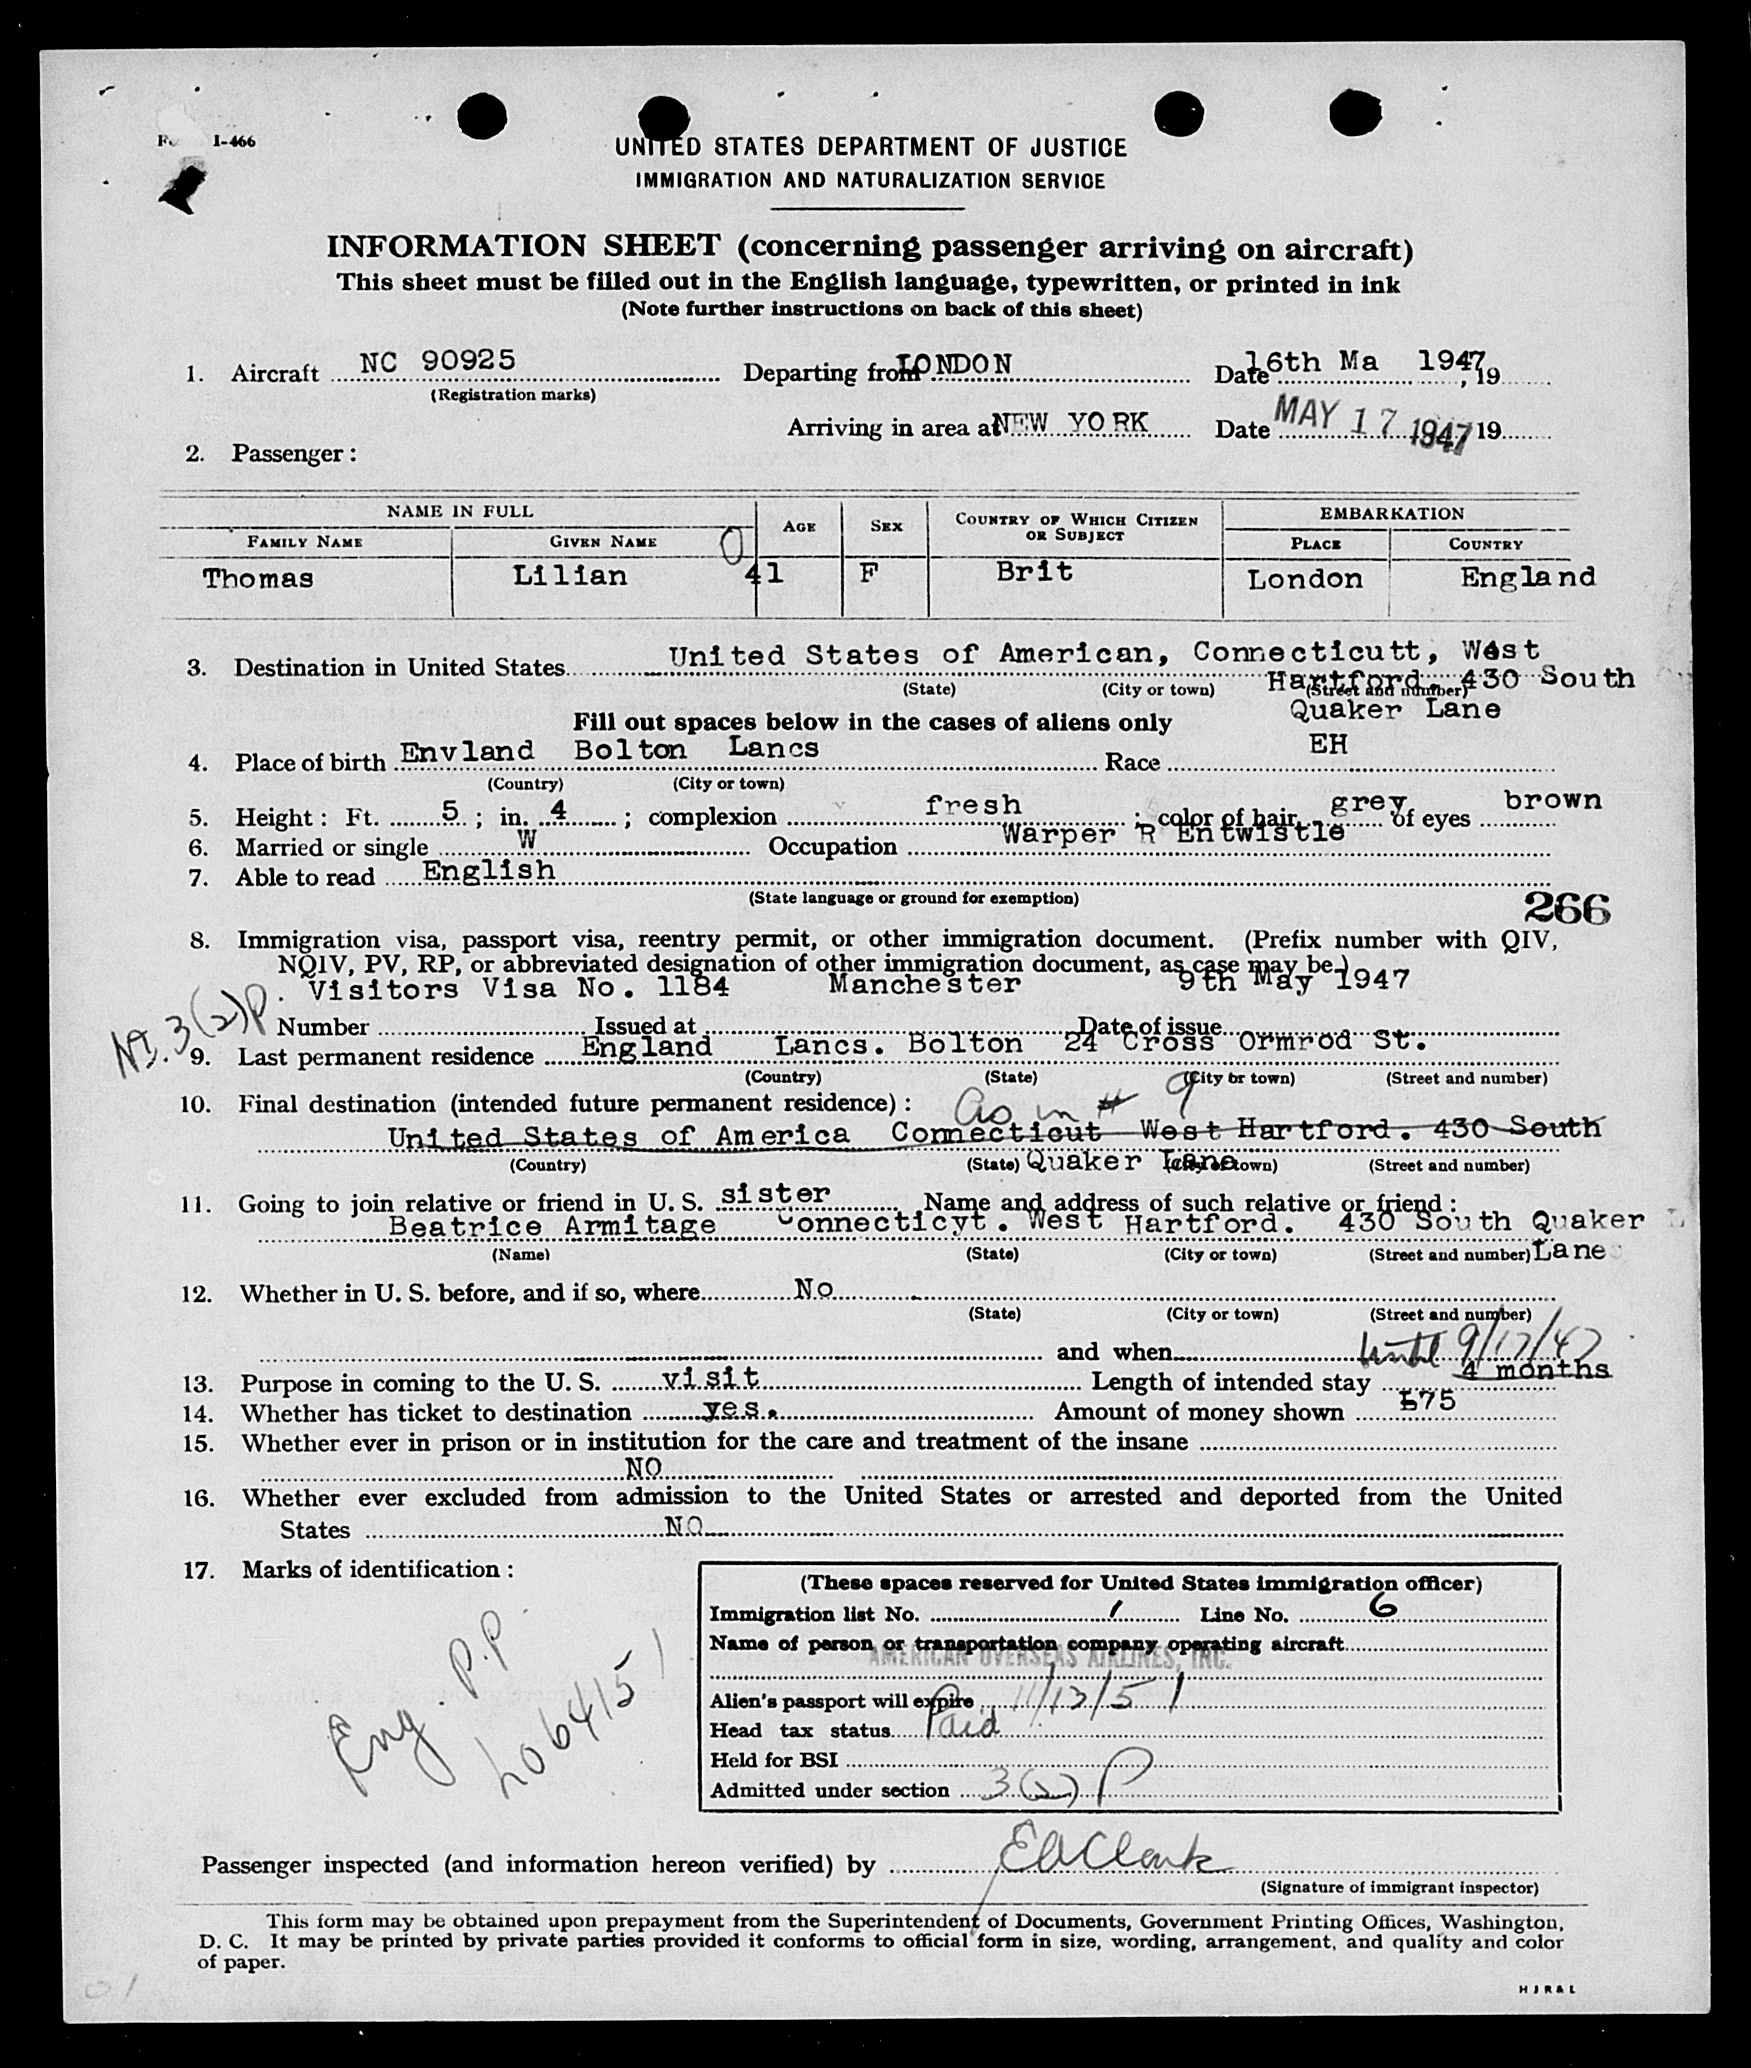 I-466
UNITED STATES DEPARTMENT OF JUSTICE
IMMIGRATION AND NATURALIZATION SERVICE
INFORMATION SHEET (concerning passenger arriving on aircraft)
This sheet must be filled out in the English language, typewritten, or printed in ink
(Note further instructions on back of this sheet)
1. Aircraft NC 90925 Departing from LONDON Date 16th Ma 1947, 19
(Registration marks)
Arriving in area at NEW YORK Date MAY 17 1947 19
2. Passenger:
NAME IN FULL AGE SEX COUNTRY OF WHICH CITIZEN OR SUBJECT EMBARKATION
FAMILY NAME GIVEN NAME PLACE COUNTRY
Thomas Lilian 41 F Brit London England
3. Destination in United States United States of American, Connecticutt, West
(State) (City or town) (Street and number) Hartford. 430 South
Fill out spaces below in the cases of aliens only Quaker Lane
4. Place of birth Envland Bolton Lancs Race EH
(Country) (City or town)
5. Height: Ft. 5; in. 4; complexion fresh; color of hair grey of eyes brown
6. Married or single W Occupation Warper R Entwistle
7. Able to read English
(State language or ground for exemption)
266
8. Immigration visa, passport visa, reentry permit, or other immigration document. (Prefix number with QIV,
NQIV, PV, RP, or abbreviated designation of other immigration document, as case may be.)
Visitors Visa No. 1184 Manchester 9th May 1947
NI. 3(2)P
Number Issued at Date of issue
9. Last permanent residence England Lancs. Bolton 24 Cross Ormrod St.
(Country) (State) (City or town) (Street and number)
10. Final destination (intended future permanent residence): As in # 9
United States of America Connecticut West Hartford. 430 South
(Country) (State) Quaker Lane (City or town) (Street and number)
11. Going to join relative or friend in U. S. sister Name and address of such relative or friend:
Beatrice Armitage Connecticyt. West Hartford. 430 South Quaker L
(Name) (State) (City or town) (Street and number) Lane
12. Whether in U. S. before, and if so, where No
(State) (City or town) (Street and number)
and when until 9/17/47
13. Purpose in coming to the U. S. visit Length of intended stay 4 months
14. Whether has ticket to destination yes. Amount of money shown £75
15. Whether ever in prison or in institution for the care and treatment of the insane
NO
16. Whether ever excluded from admission to the United States or arrested and deported from the United
States NO
17. Marks of identification:
Eng. P.P.
(These spaces reserved for United States immigration officer)
Immigration list No. 1 Line No. 6
Name of person or transportation company operating aircraft
AMERICAN OVERSEAS AIRLINES, INC.
Alien's passport will expire 11/13/51
Head tax status Paid
Held for BSI
Admitted under section 3(2) P
Passenger inspected (and information hereon verified) by EAClark
(Signature of immigrant inspector)
This form may be obtained upon prepayment from the Superintendent of Documents, Government Printing Offices, Washington,
D. C. It may be printed by private parties provided it conforms to official form in size, wording, arrangement, and quality and color
of paper.
01
HJR&L